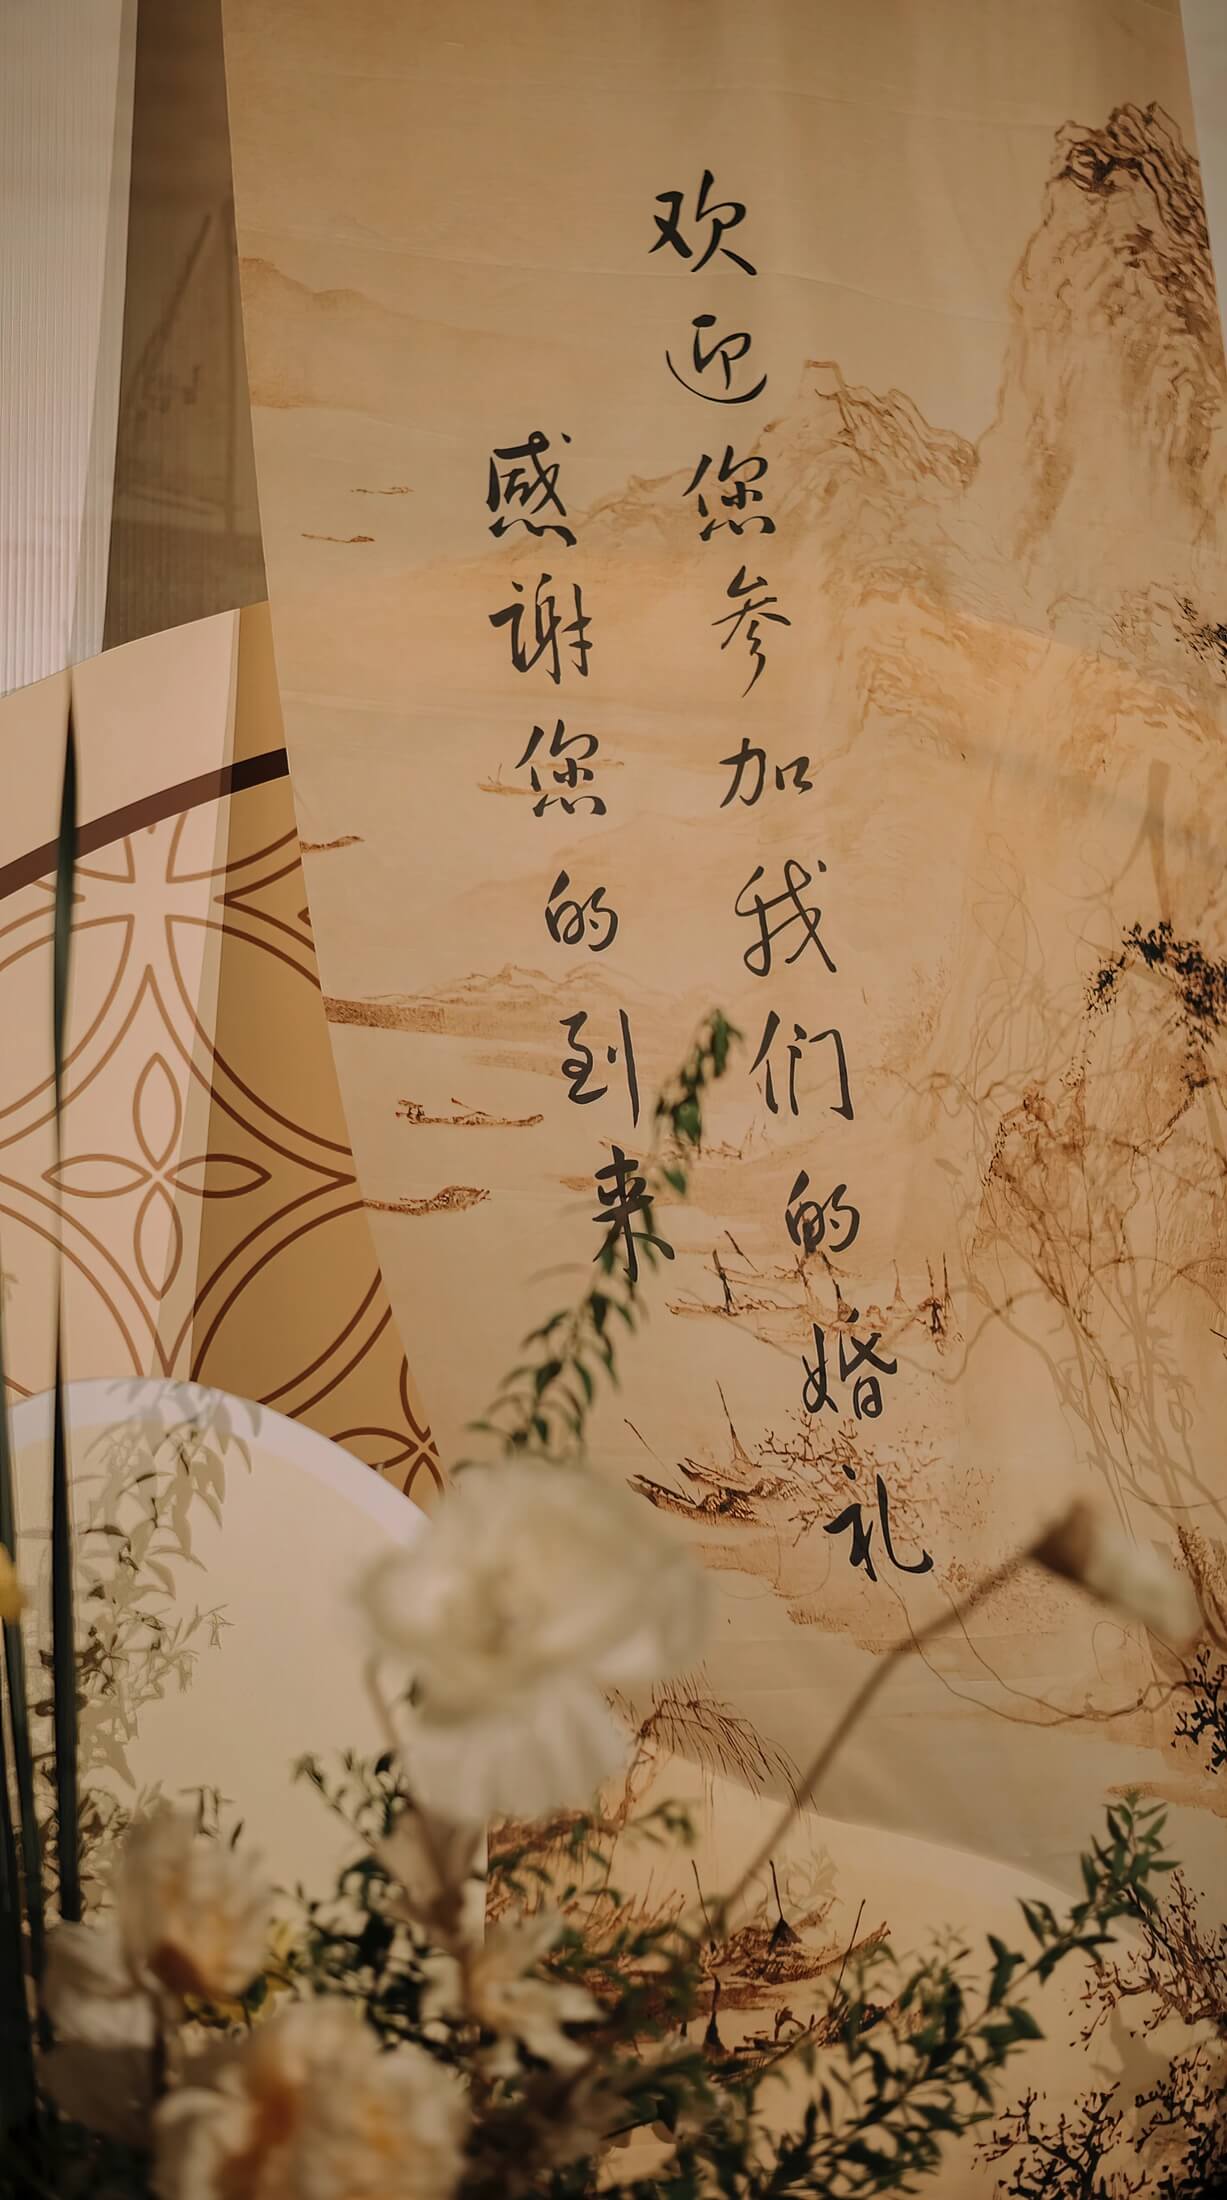 欢迎您参加我们的婚礼
感谢您的到来